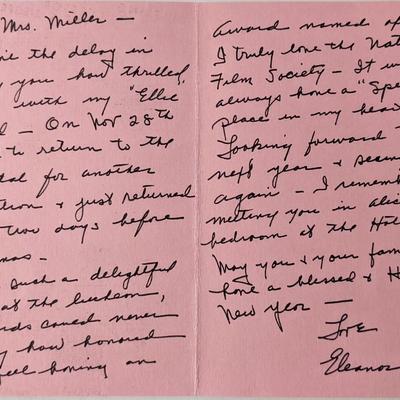 Mrs. Miller —
the delay in
you how thrilled
with my "Ellie
— On Nov 28th
to return to the
for another
& just returned
two days before
such a delightful
at the luncheon,
could never
how honored
feel having an
award named a
I truly love the Nat
Film Society — It w
always have a "Spe
place in my hea
Looking forward
next year & seein
again — I remem
meeting you in alic
bedroom at the Ho
May you & your fam
have a blessed & H
New Year —
Love
Eleanor